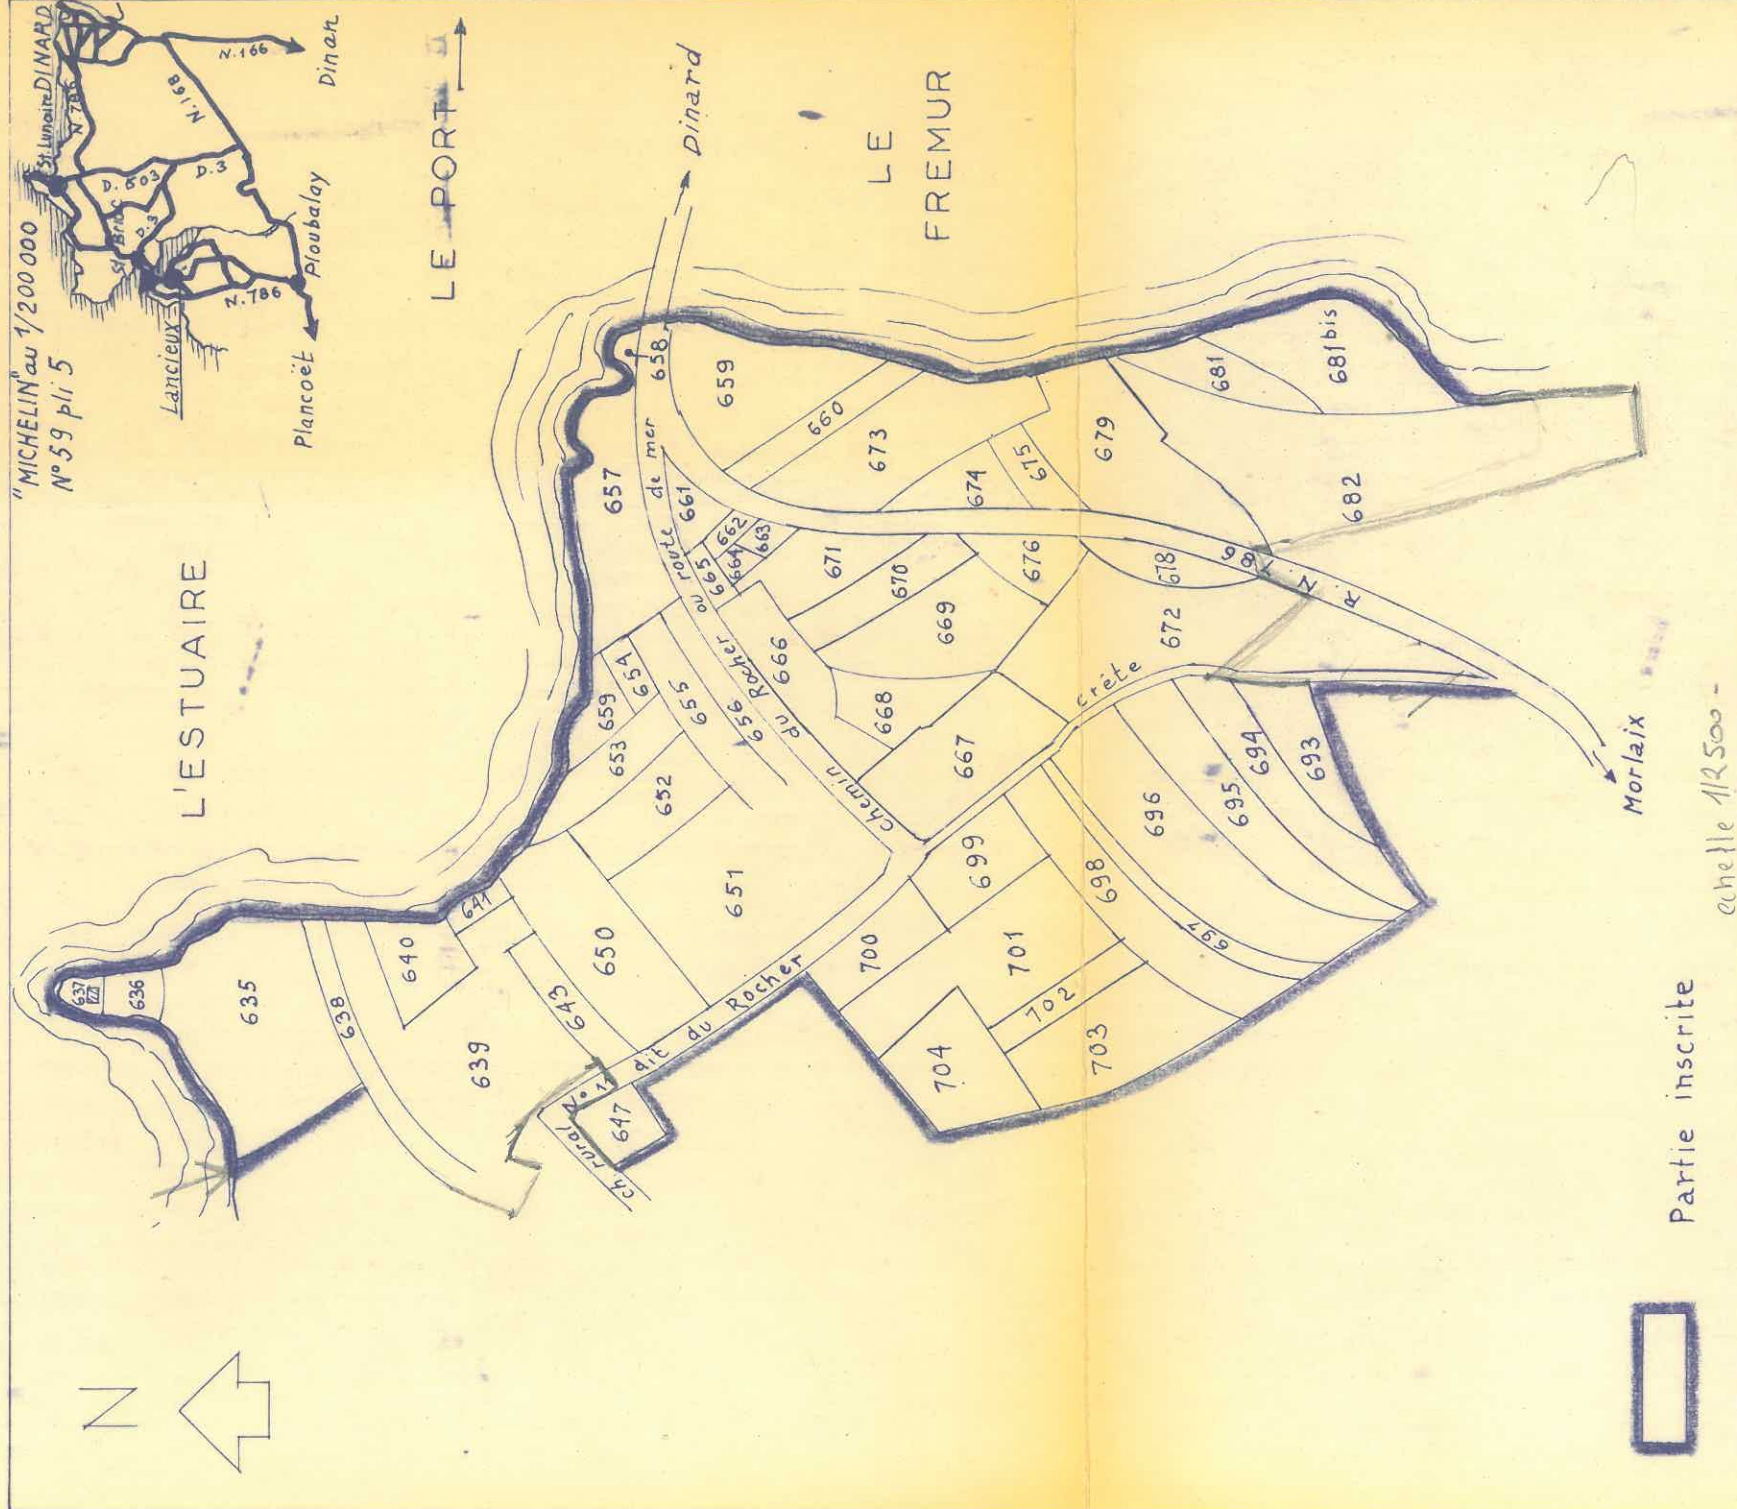 "MICHELIN" au 1/200 000
N° 59 pli 5
St. Lunaire
DINARD
N. 786
N. 166
N. 168
D. 603
D. 3
D. 3
St. Briac
N. 786
Lancieux
Ploubalay
Plancoët
Dinan
LE PORT
Dinard
LE
FREMUR
L'ESTUAIRE
N
637
636
635
638
640
641
639
643
650
651
652
653
659
654
655
656
657
658
659
660
661
662
663
664
665
666
667
668
669
670
671
672
673
674
675
676
678
679
681
681 bis
682
693
694
695
696
697
698
699
700
701
702
703
704
647
ch. rural N° 11
dit du Rocher
chemin du Rocher ou route de mer
crête
R. N. 786
Morlaix
Partie inscrite
echelle 1/2500 -